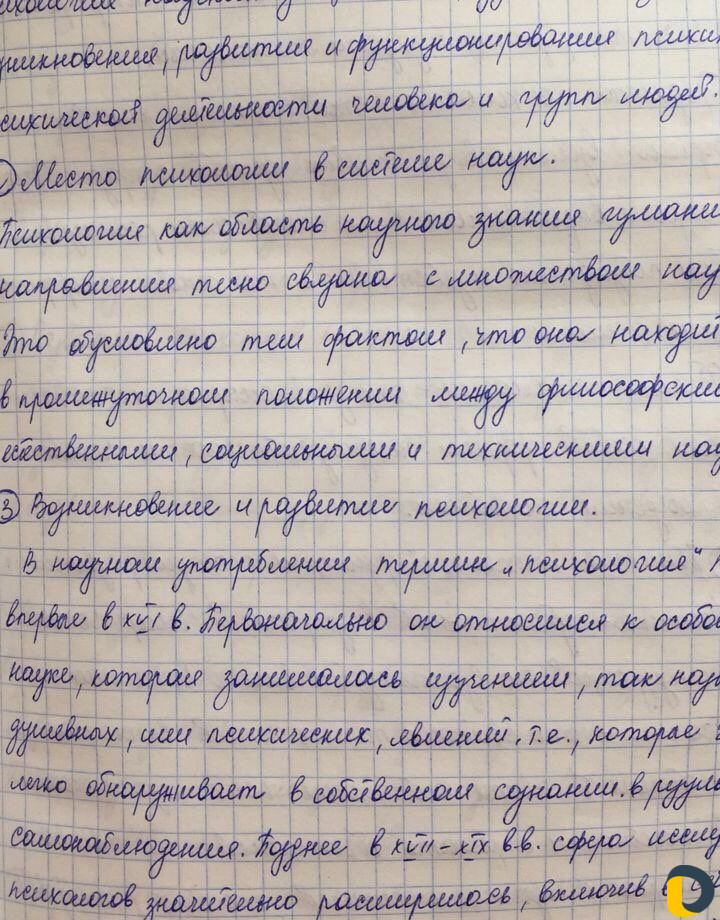 никновения, развития и функционирования психи
сихической деятельности человека и групп людей.
Место психологии в системе наук.
Психология как область научного знания гумани
направления тесно связана с множеством нау
Это обусловлено тем фактом, что она находит
в промежуточном положении между философски
естественными, социальными и техническими нау
3) Возникновение и развитие психологии.
В научном употреблении термин „психология"
впервые в XVI в. Первоначально он относился к особо
науке, которая занималась изучением, так наз
душевных, или психических, явлений, т.е., которые
легко обнаруживает в собственном сознании в резуль
самонаблюдения. Позднее в XVII-XIX в.в. сфера исслу
психологов значительно расширилась, включив в себ